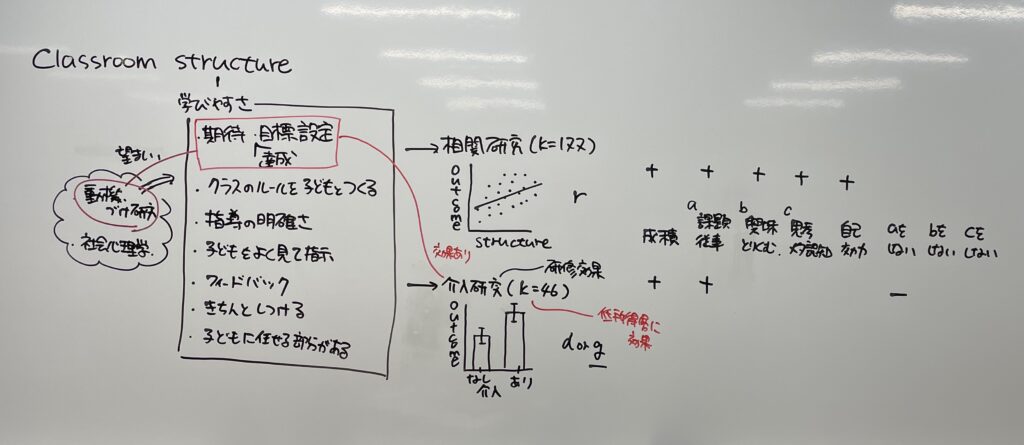 Classroom structure
学びやすさ
・期待・目標設定
達成
・クラスのルールを子どもとつくる
・指導の明確さ
・子どもをよく見て指示
・フィードバック
・きちんとしつける
・子どもに任せる部分がある
望ましい
動機
づけ研究
・社会心理学
相関研究(K=177)
outcome
structure
r
効果あり
研修効果
介入研究(K=46)
低所得層に
効果
outcome
なし あり
介入
d or g
+ + + + +
a b c
成績 課題 興味 思考 自己 aを bを cを
従事 とりくむ メタ認知 効力 しない しない しない
+ + −